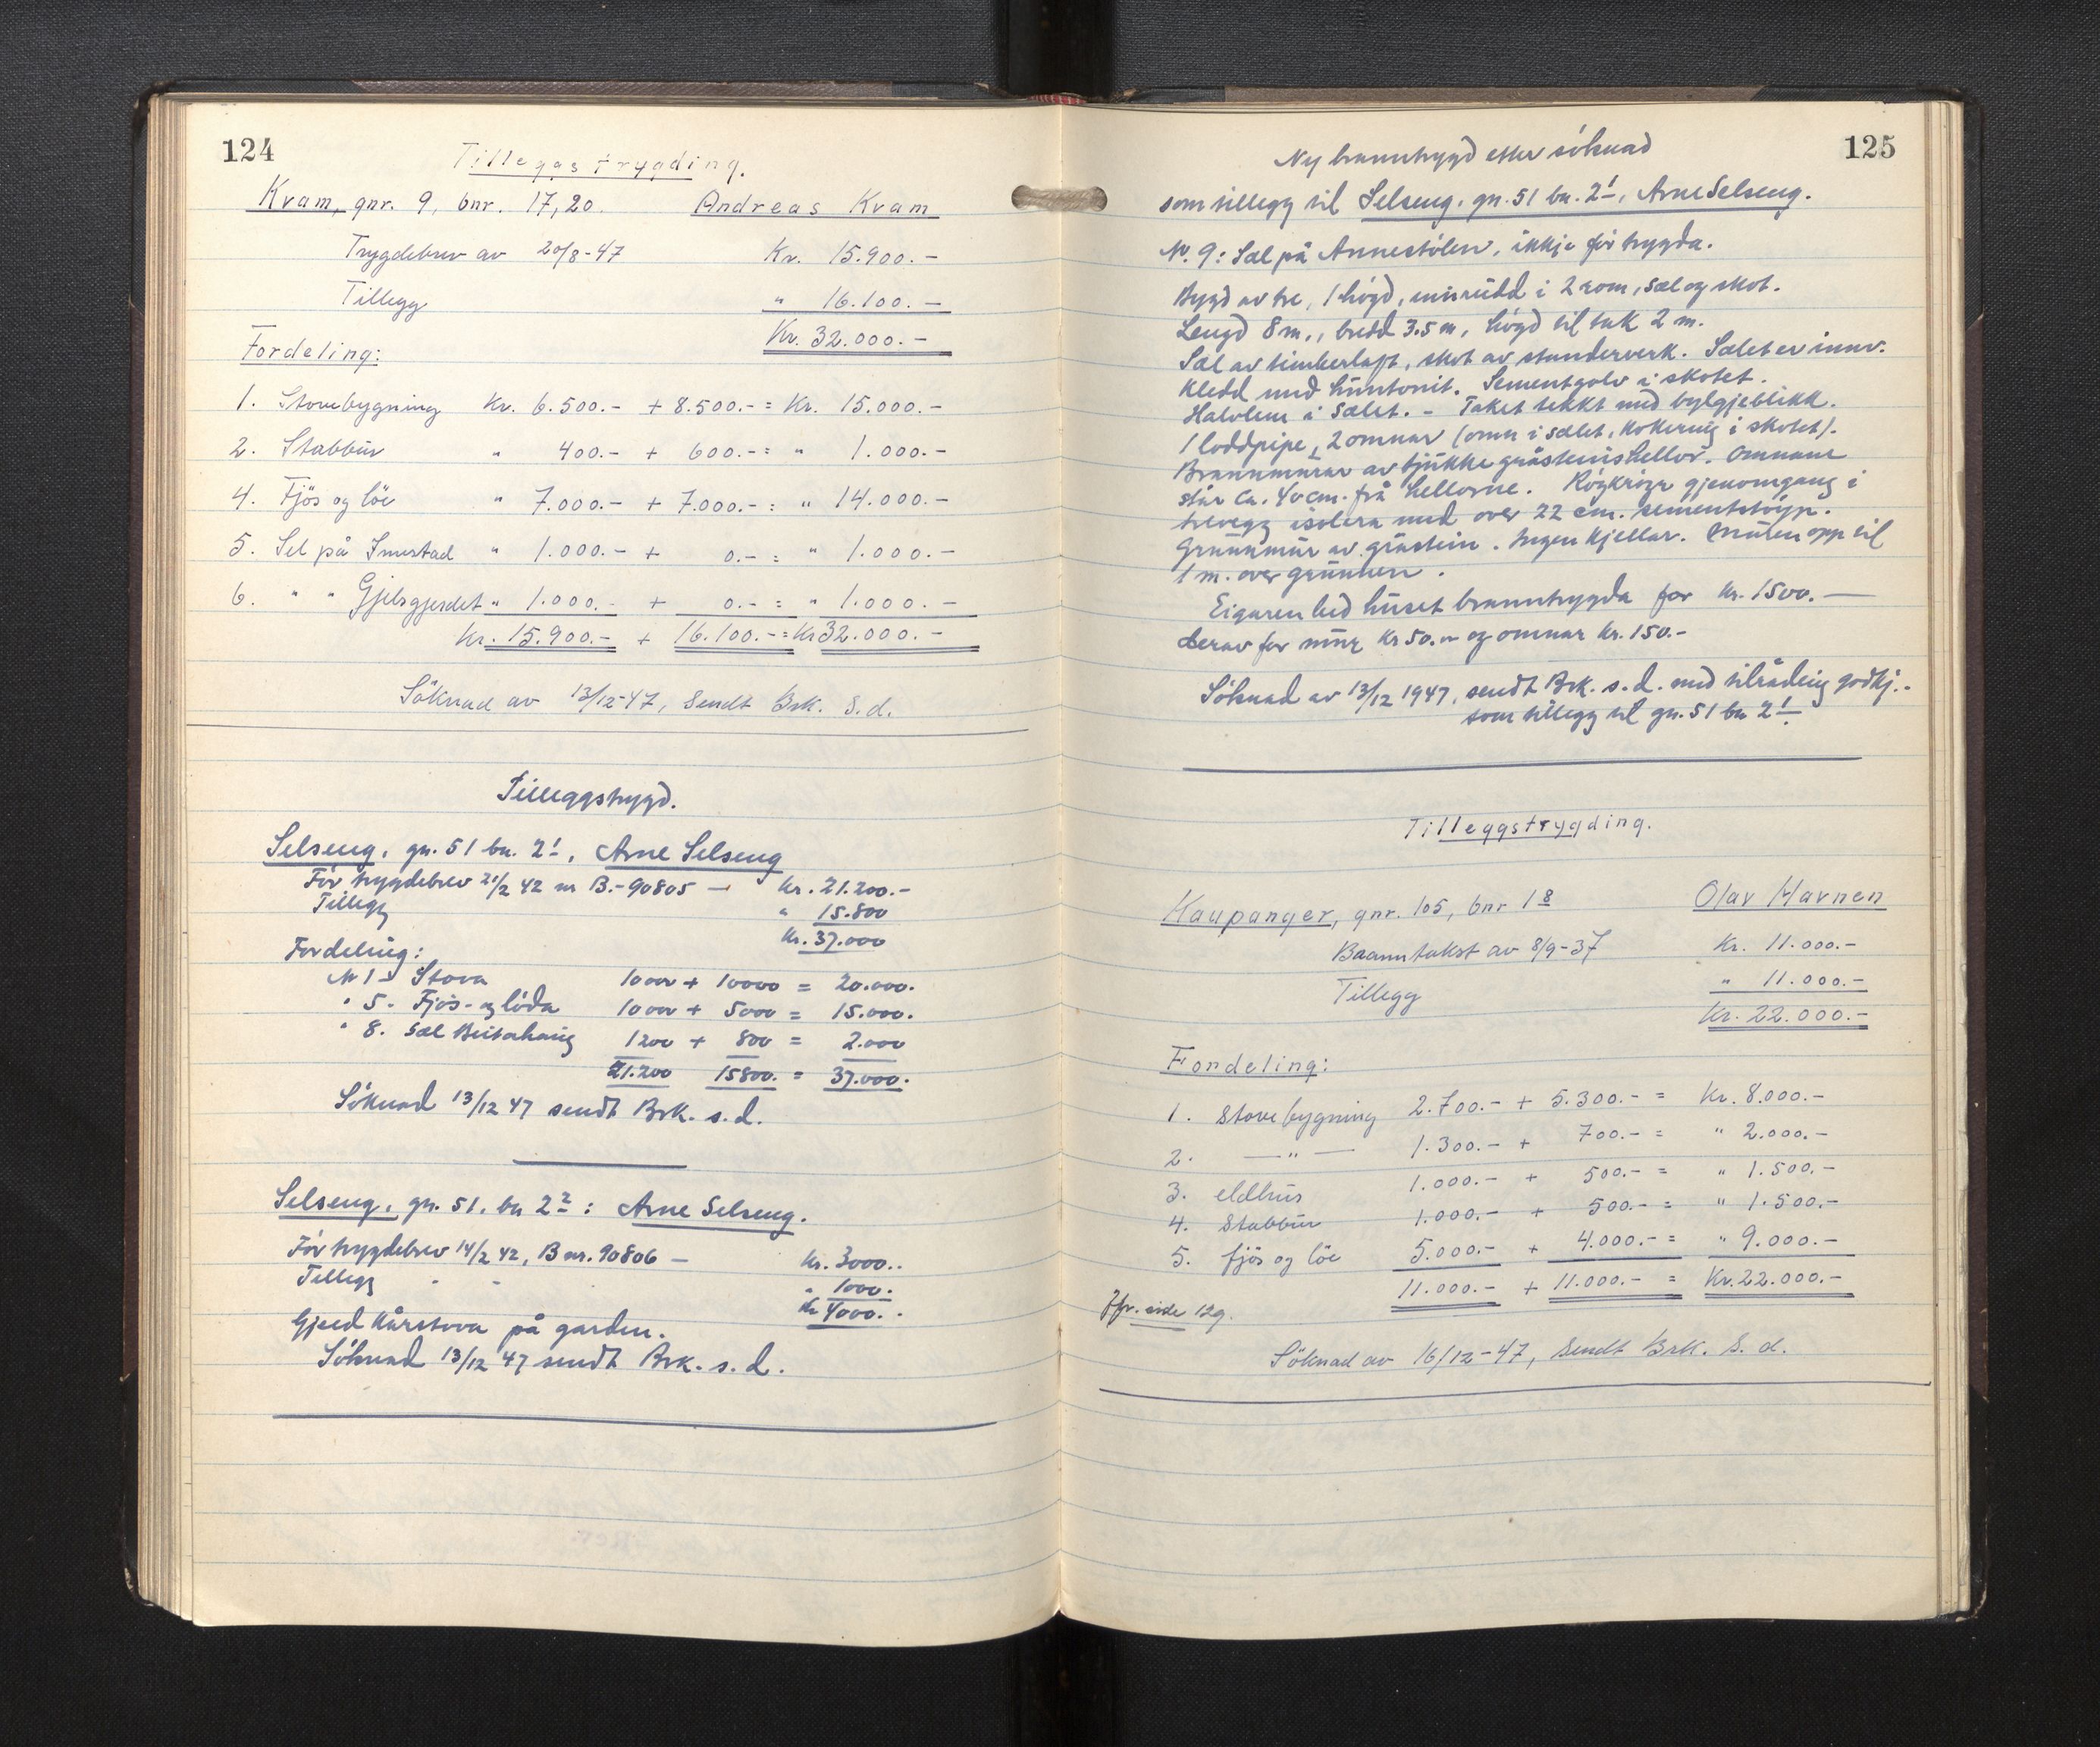 124
Tilleggstrygding.
Kvam, gnr. 9, bnr. 17,20. Andreas Kvam
Trygdebrev av 20/8-47 Kr. 15.900.-
Tillegg " 16.100.-
Kr. 32.000.-
Fordeling:
1. Stovebygning Kr. 6.500.- + 8.500.- = Kr. 15.000.-
2. Stabbur " 400.- + 600.- = " 1.000.-
4. Fjös og löe " 7.000.- + 7.000.- = " 14.000.-
5. Sel på Smestad " 1.000.- + 0.- = " 1.000.-
6. " " Gjelsgjerdet " 1.000.- + 0.- = " 1.000.-
Kr. 15.900.- + 16.100.- = Kr 32.000.-
Söknad av 13/12-47, Sendt Brk. S.d.
Tilleggstrygd.
Selseng, gn. 51 bn. 2¹, Arne Selseng
För trygdebrev 21/2 42 nr B.-90805 — Kr. 21.200.-
Tillegg " 15.800
Kr. 37.000
Fordeling:
Nr 1 - Stova 10000 + 10000 = 20.000.
" 5. Fjös- og löda 10000 + 5000 = 15.000.
" 8. Sæl 1200 + 800 = 2.000
21.200 15800. = 37.000.
Söknad 13/12 47 sendt Brk. s.d.
Selseng, gn. 51, bn 2² : Arne Selseng.
För trygdebrev 14/2 42, B nr. 90806 — Kr. 3000..
Tillegg - - " 1000.
Kr 4000..
Gjeld kårstova på garden.
Söknad 13/12 47 sendt Brk. s.d.
125
Ny branntrygd etter söknad
som tillegg til Selseng, gn. 51 bn. 2¹, Arne Selseng.
Nr. 9: Sæl på Annestölen, ikkje för trygda.
Bygd av tre, 1 högd, innreidd i 2 rom, sæl og skot.
Lengd 8 m., bredd 3.5 m, högd til tak 2 m.
Sæl av timberlaft, skot av stenderverk. Sælet er innv.
kledd med huntonit. Sementgolv i skotet.
Halvlem i sælet. - Taket tekkt med bylgjeblikk.
1 loddpipe, 2 omnar (omn i sælet, kokeomn i skotet).
Brannmurar av tjukke gråsteinshellor. Omnane
står ca. 40 cm. frå hellorne. Röykröyr gjenomgang i
trevegg isolera med over 22 cm. sementstöyp.
Grunnmur av gråstein. Ingen kjellar. Muren opp til
1 m. over grunnen.
Eigaren bed huset branntrygda for kr. 1500.—
derav for mur kr 50.- og omnar kr. 150.-
Söknad av 13/12 1947, sendt Brk. s.d. med tilråding godkj.-
som tillegg til gn. 51 bn 2¹
Tilleggstrygding.
Kaupanger, gnr. 105, bnr 1⁸ Olav Havnen
Branntakst av 8/9-37 Kr. 11.000.-
Tillegg " 11.000.-
Kr. 22.000.-
Fordeling:
1. Stovebygning 2.700.- + 5.300.- = Kr. 8.000.-
2. —"— 1.300.- + 700.- = " 2.000.-
3. eldhus 1.000.- + 500.- = " 1.500.-
4. Stabbur 1.000.- + 500.- = " 1.500.-
5. fjös og löe 5.000.- + 4.000.- = " 9.000.-
11.000.- + 11.000.- = Kr. 22.000.-
Jfr. side 129.
Söknad av 16/12-47, Sendt Brk. S.d.